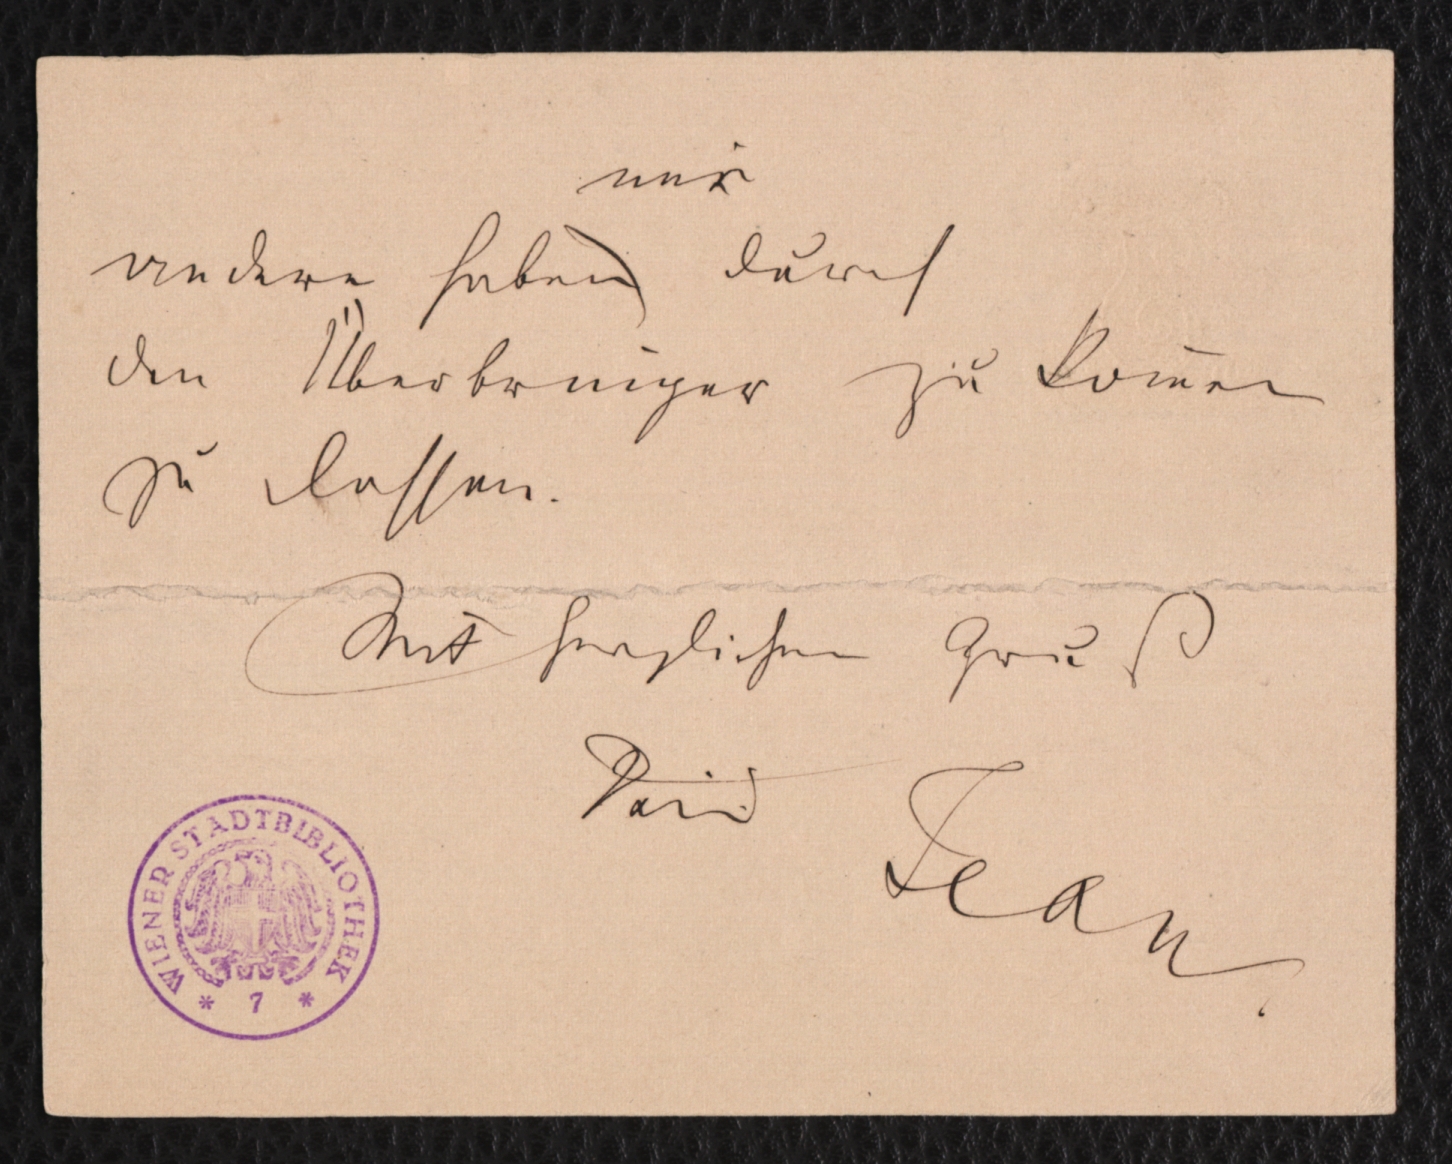 mir
andere haben) durch
den Überbringer zu kom̄en
zu lassen.
Mit herzlichen Gruß
Dein Jean
WIENER STADTBIBLIOTHEK
* 7 *